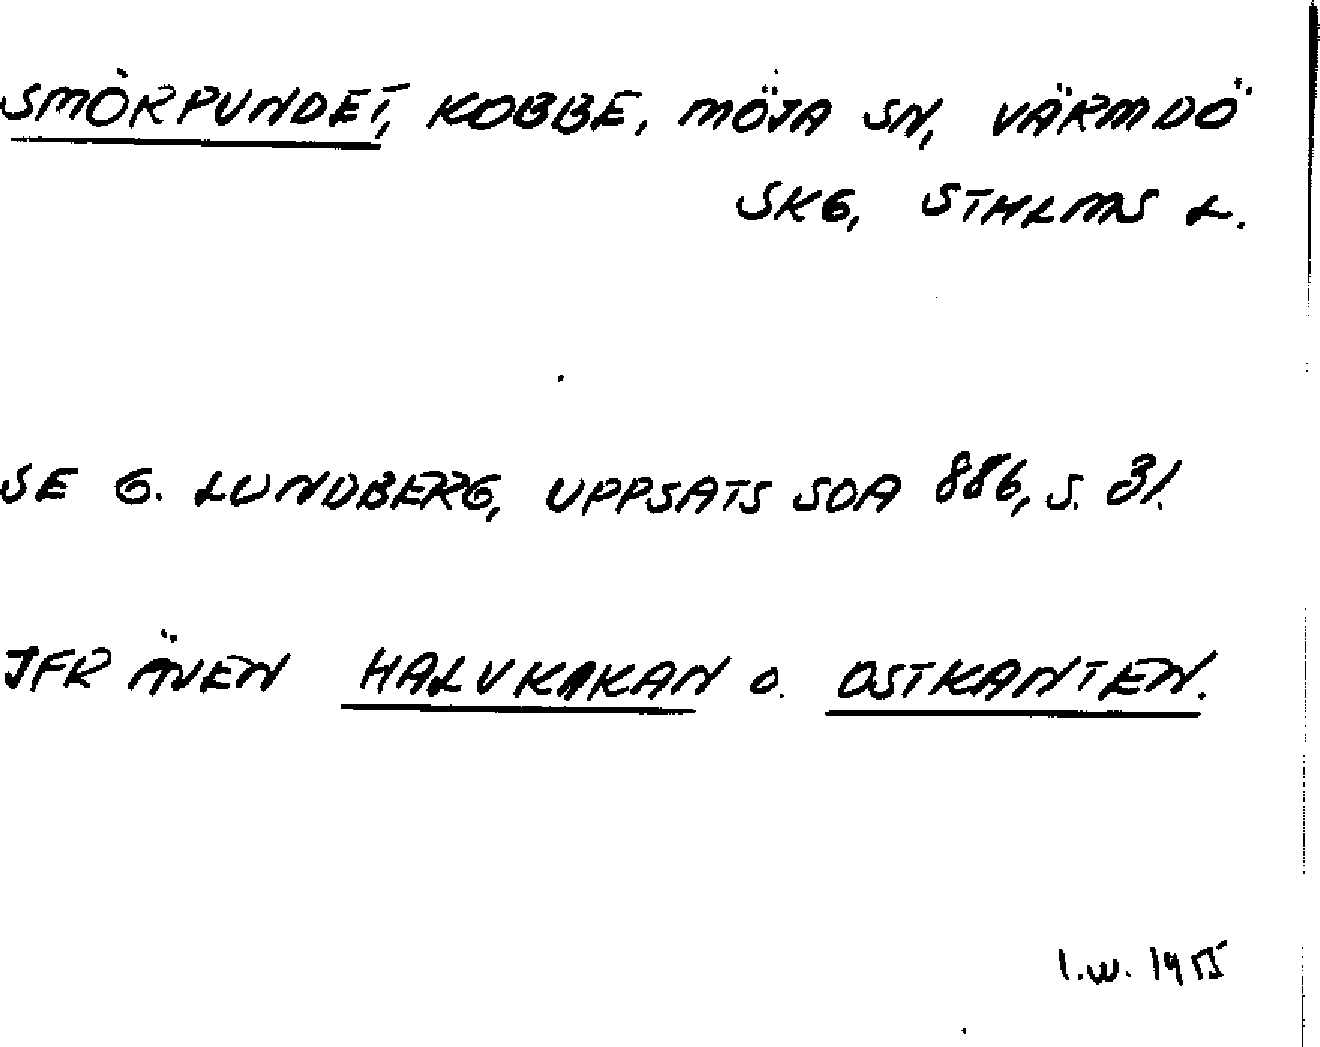 SMÖRPUNDET, KOBBE, MÖJA SN, VÄRMDÖ
SKG, STHLMS L.
SE G. LUNDBERG, UPPSATS SOA 886, S. 31.
JFR ÄVEN HALVKAKAN O. OSTKANTEN.
I.W. 1955